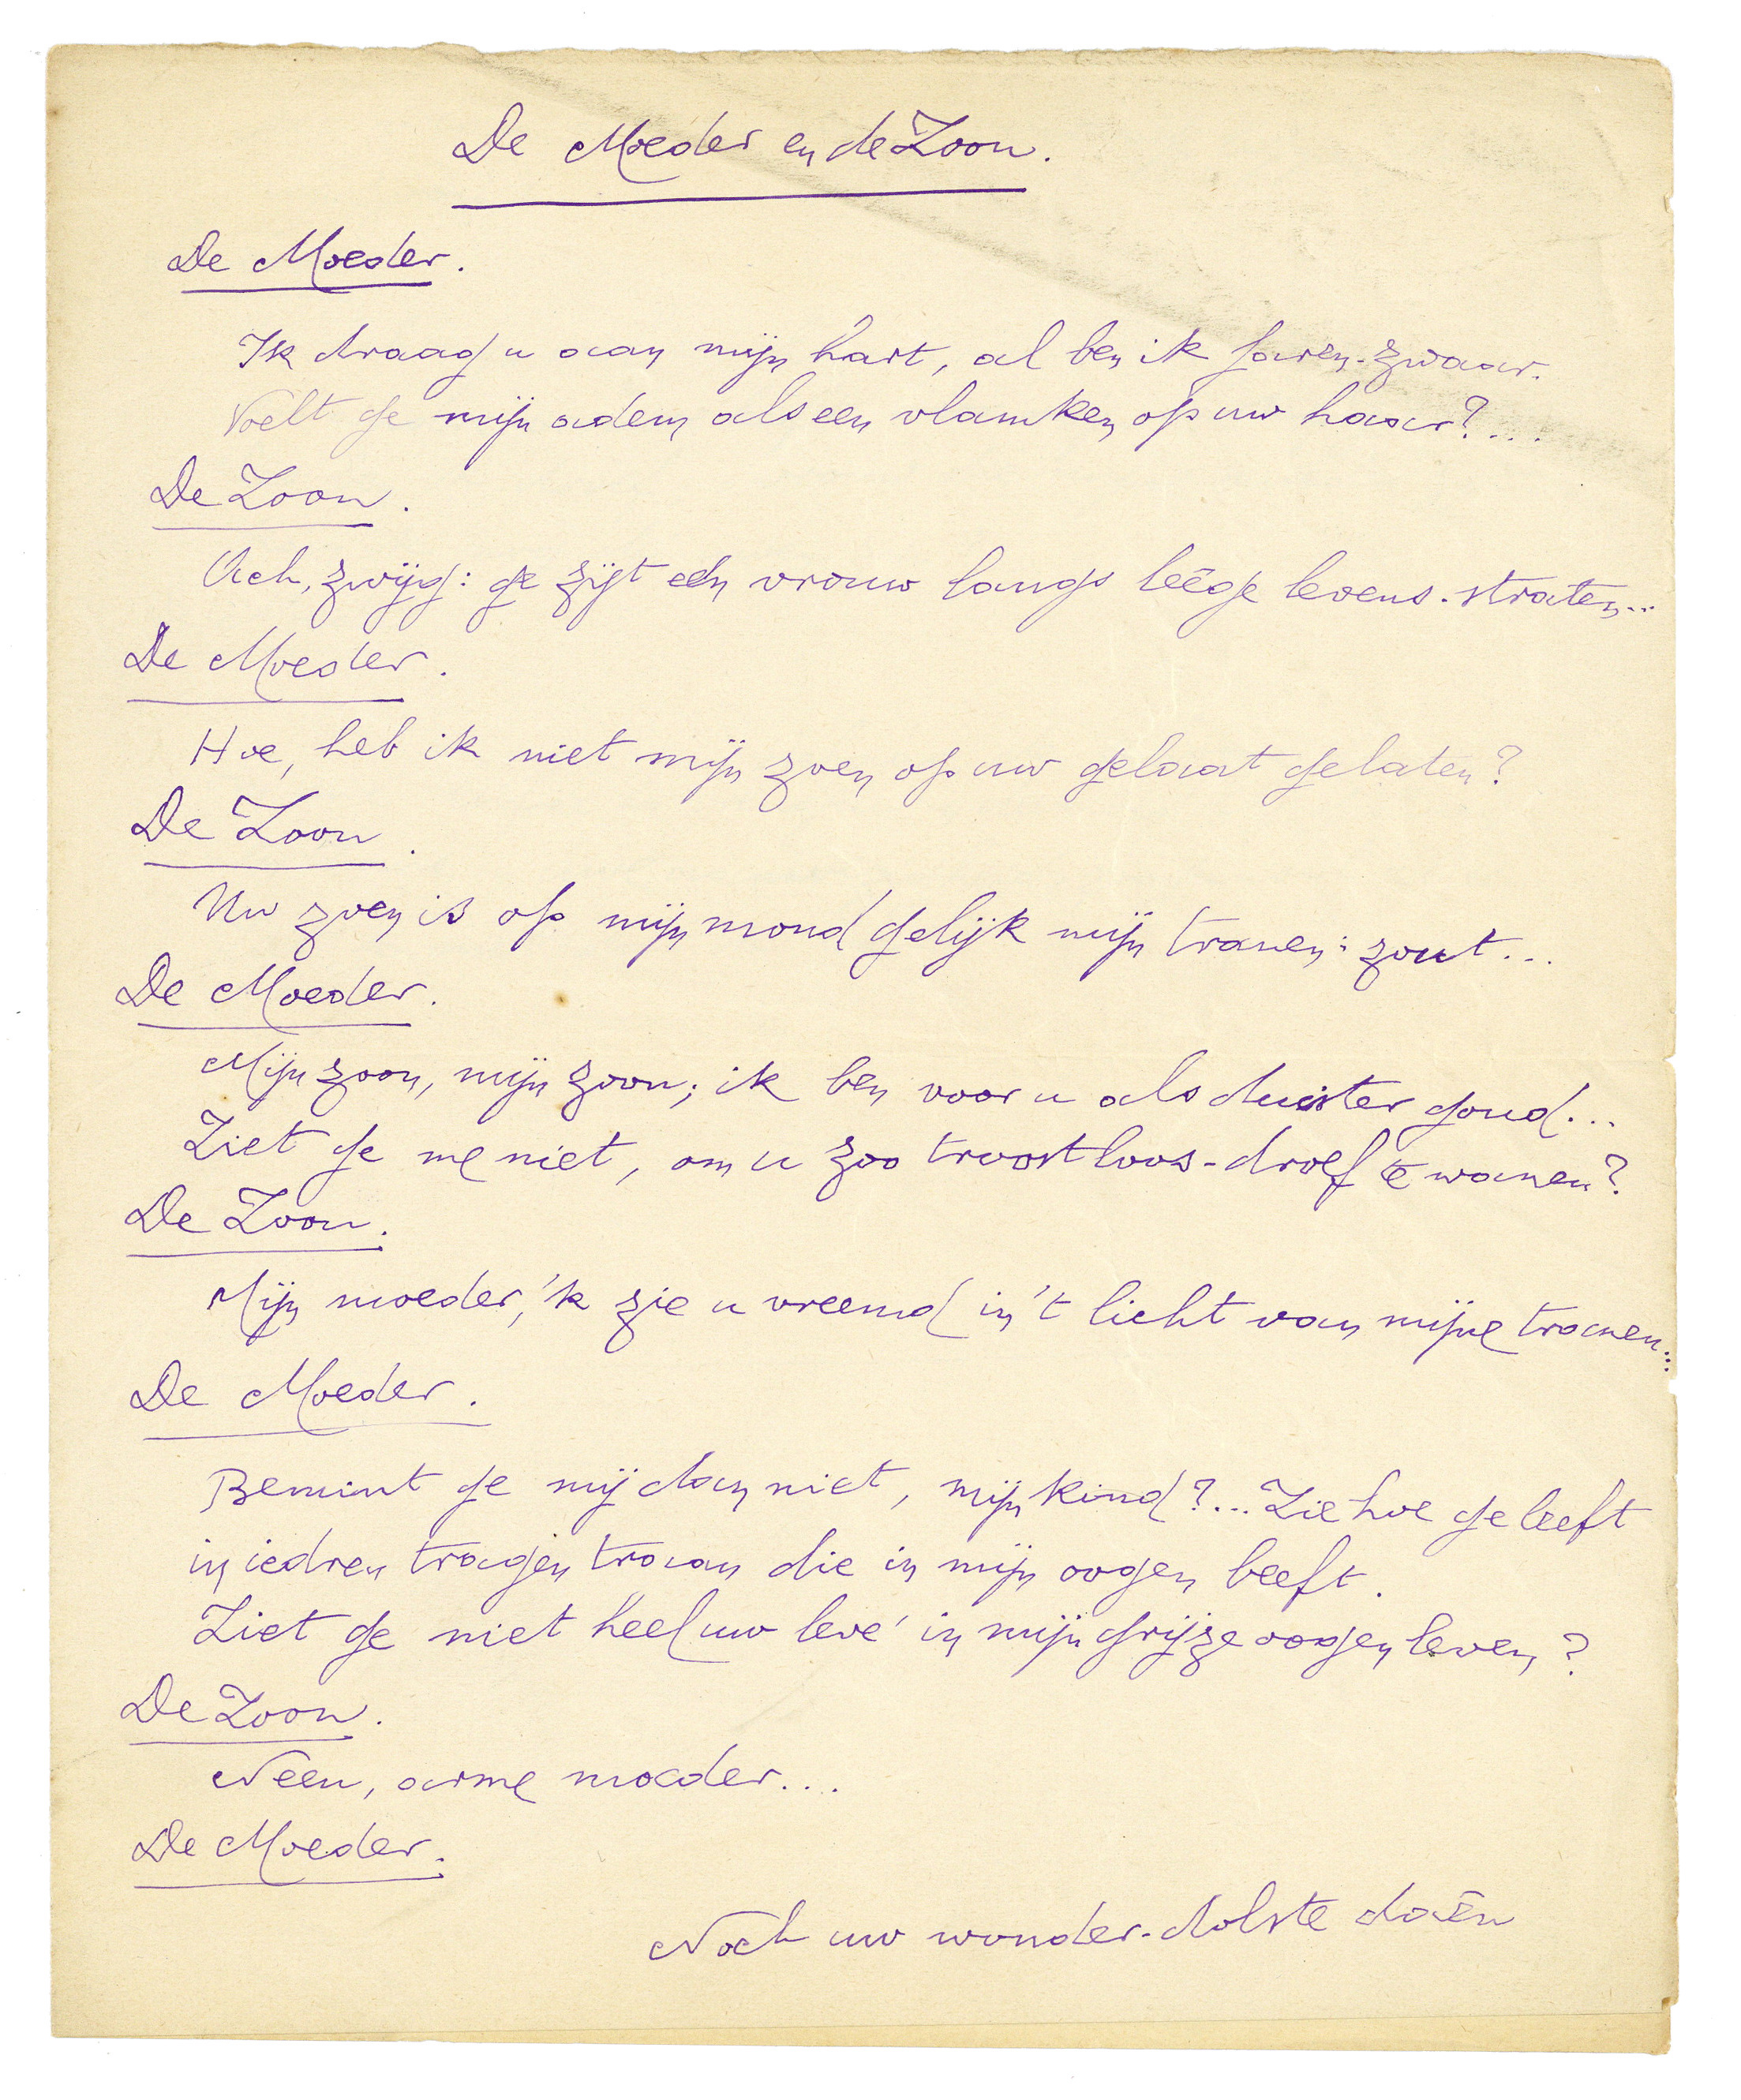 De Moeder en de Zoon.
De Moeder.
Ik draag u aan mijn hart, al ben ik jaren-zwaar.
Voelt ge mijn adem als een vlamken op uw haar?...
De Zoon.
Ach, zwijg: ge zijt een vrouw langs leêge levens-straten...
De Moeder.
Hoe, heb ik niet mijn zoen op uw gelaat gelaten?
De Zoon.
Uw zoen is op mijn mond gelijk mijn tranen: zout...
De Moeder.
Mijn zoon, mijn zoon; ik ben voor u als duister goud...
Ziet ge me niet, om u zoo troostloos-droef te wanen?
De Zoon.
Mijn moeder, 'k zie u vreemd in 't licht van mijne tranen...
De Moeder.
Bemint ge mij dan niet, mijn kind?... Zie hoe ge leeft
in iedren tragen traan die in mijn oogen beeft.
Ziet ge niet heel uw leve' in mijn grijze oogen leven?
De Zoon.
Neen, arme moeder...
De Moeder.
Noch uw wonder-dolste daên